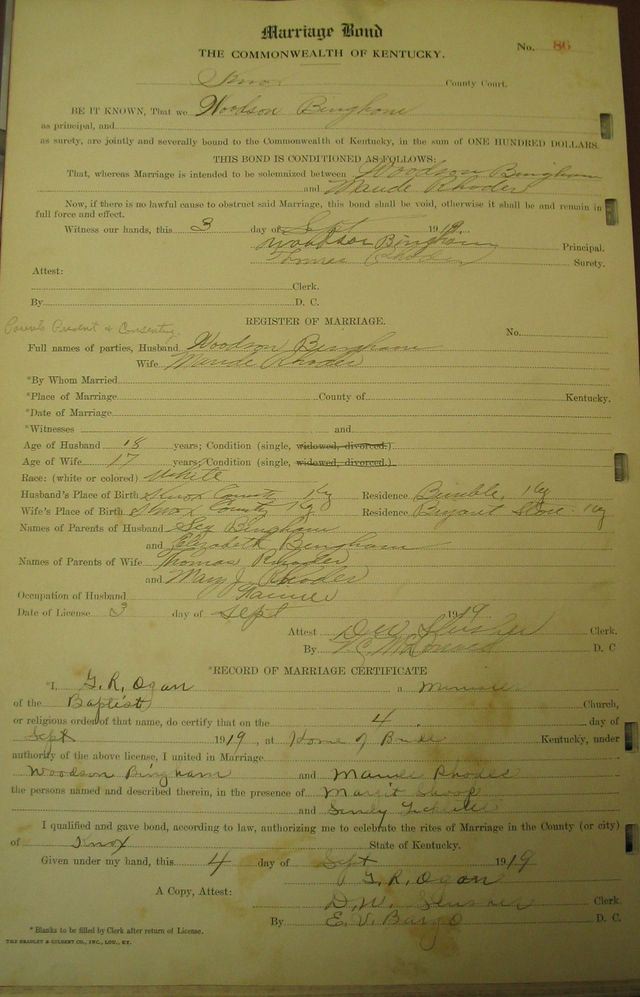 Marriage Bond
THE COMMONWEALTH OF KENTUCKY.
No. 86
Knox County Court.
BE IT KNOWN, That we Woodson Bingham
as principal, and
as surety, are jointly and severally bound to the Commonwealth of Kentucky, in the sum of ONE HUNDRED DOLLARS.
THIS BOND IS CONDITIONED AS FOLLOWS:
That, whereas Marriage is intended to be solemnized between Woodson Bingham
and Maude Rhodes
Now, if there is no lawful cause to obstruct said Marriage, this bond shall be void, otherwise it shall be and remain in
full force and effect.
Witness our hands, this 3 day of Sept 1919.
Woodson Bingham Principal.
Thomas Rhodes Surety.
Attest:
Clerk.
By D. C.
Parents Present & Consenting
REGISTER OF MARRIAGE.
No.
Full names of parties, Husband Woodson Bingham
Wife Maude Rhodes
*By Whom Married
*Place of Marriage County of Kentucky.
*Date of Marriage
*Witnesses and
Age of Husband 18 years; Condition (single, widowed, divorced.)
Age of Wife 17 years; Condition (single, widowed, divorced.)
Race: (white or colored) White
Husband's Place of Birth Knox County Ky Residence Bimble, Ky
Wife's Place of Birth Knox County Ky Residence Bryant Store Ky
Names of Parents of Husband Bingham
and Elizabeth Bingham
Names of Parents of Wife Thomas Rhodes
and Mary J. Rhodes
Occupation of Husband Farmer
Date of License 3 day of Sept 1919
Attest D W Slusher Clerk.
By D. C
*RECORD OF MARRIAGE CERTIFICATE
*I, G. R. Ogan a Minister
of the Baptist Church,
or religious order of that name, do certify that on the 4 day of
Sept 1919, at Home of Bride Kentucky, under
authority of the above license, I united in Marriage
Woodson Bingham and Maude Rhodes
the persons named and described therein, in the presence of
and
I qualified and gave bond, according to law, authorizing me to celebrate the rites of Marriage in the County (or city)
of Knox State of Kentucky.
Given under my hand, this 4 day of Sept 1919
G. R. Ogan
A Copy, Attest: D. W. Slusher Clerk.
By E. V. Bargo D. C.
* Blanks to be filled by Clerk after return of License.
THE BRADLEY & GILBERT CO., INC., LOU., KY.